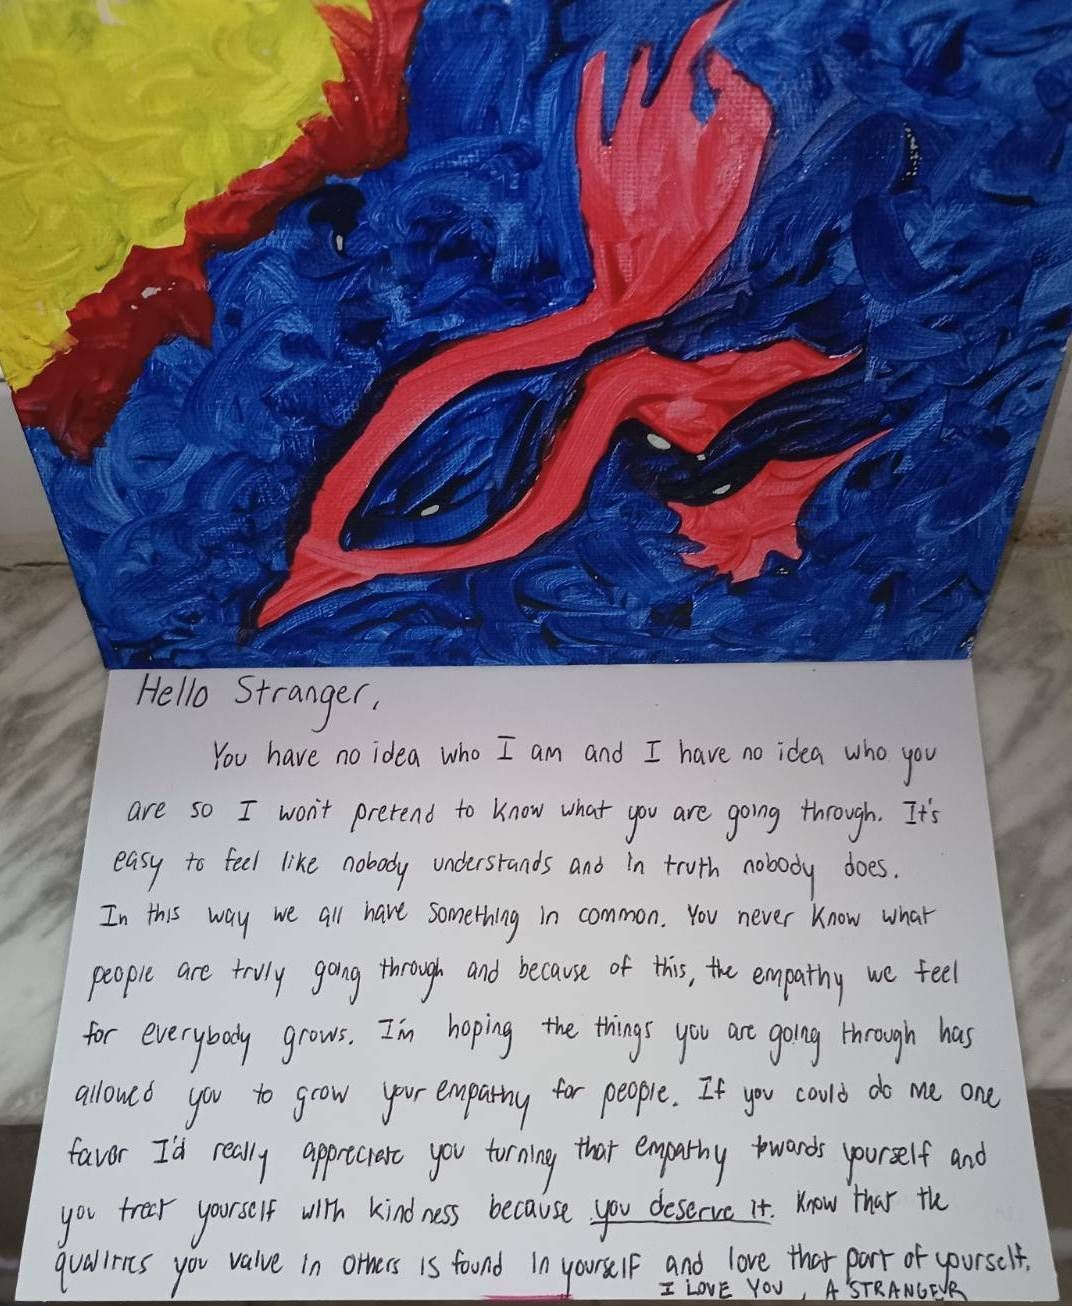 Hello Stranger,
You have no idea who I am and I have no idea who you
are so I won't pretend to know what you are going through. It's
easy to feel like nobody understands and in truth nobody does.
In this way we all have something in common. You never know what
people are truly going through and because of this, the empathy we feel
for everybody grows. I'm hoping the things you are going through has
allowed you to grow your empathy for people. If you could do me one
favor I'd really appreciate you turning that empathy towards yourself and
you treat yourself with kindness because you deserve it. Know that the
qualities you value in others is found in yourself and love that part of yourself.
I LOVE YOU, A STRANGER